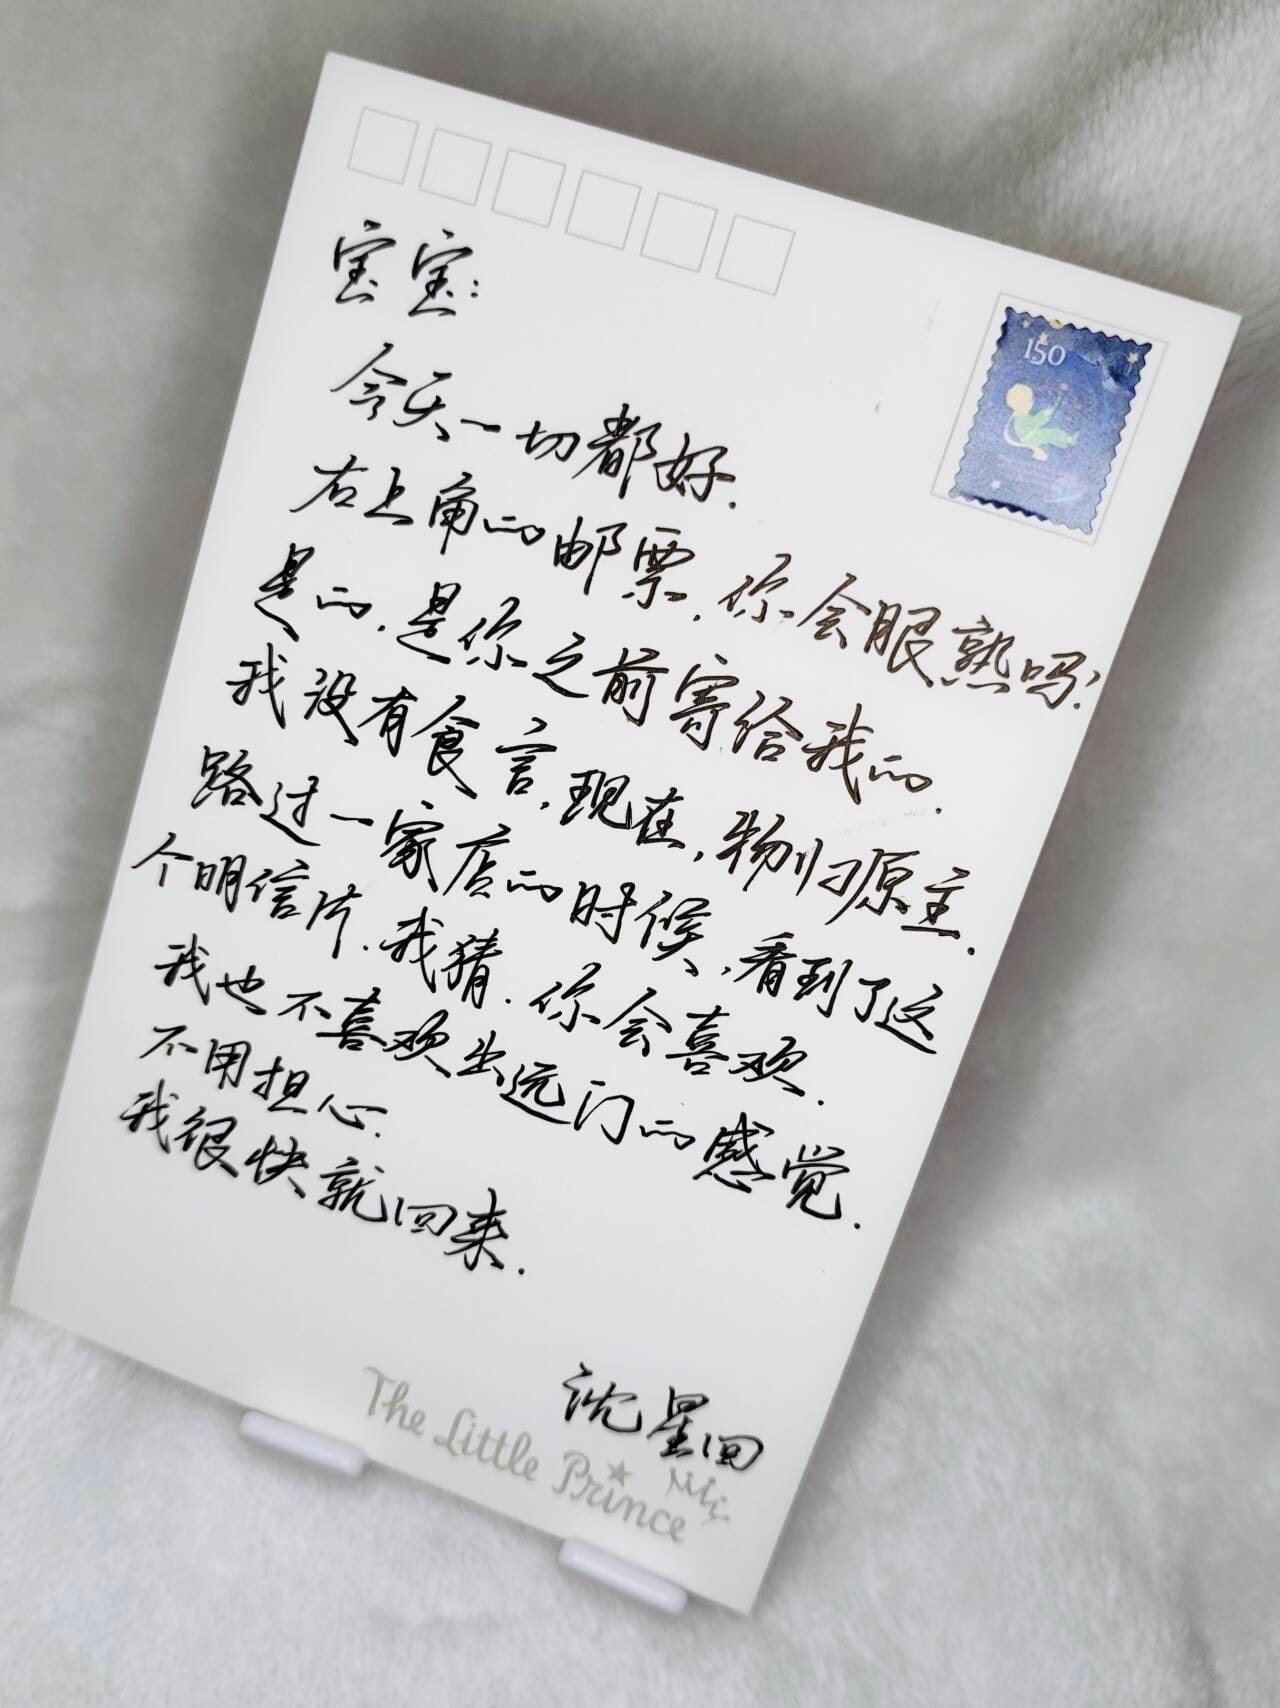 宝宝:
150
今天一切都好.
右上角的邮票,你会眼熟吗?
是的,是你之前寄给我的.
我没有食言,现在,物归原主.
路过一家店的时候,看到了这
个明信片.我猜.你会喜欢.
我也不喜欢出远门的感觉.
不用担心.
我很快就回来.
沈星回
The Little Prince